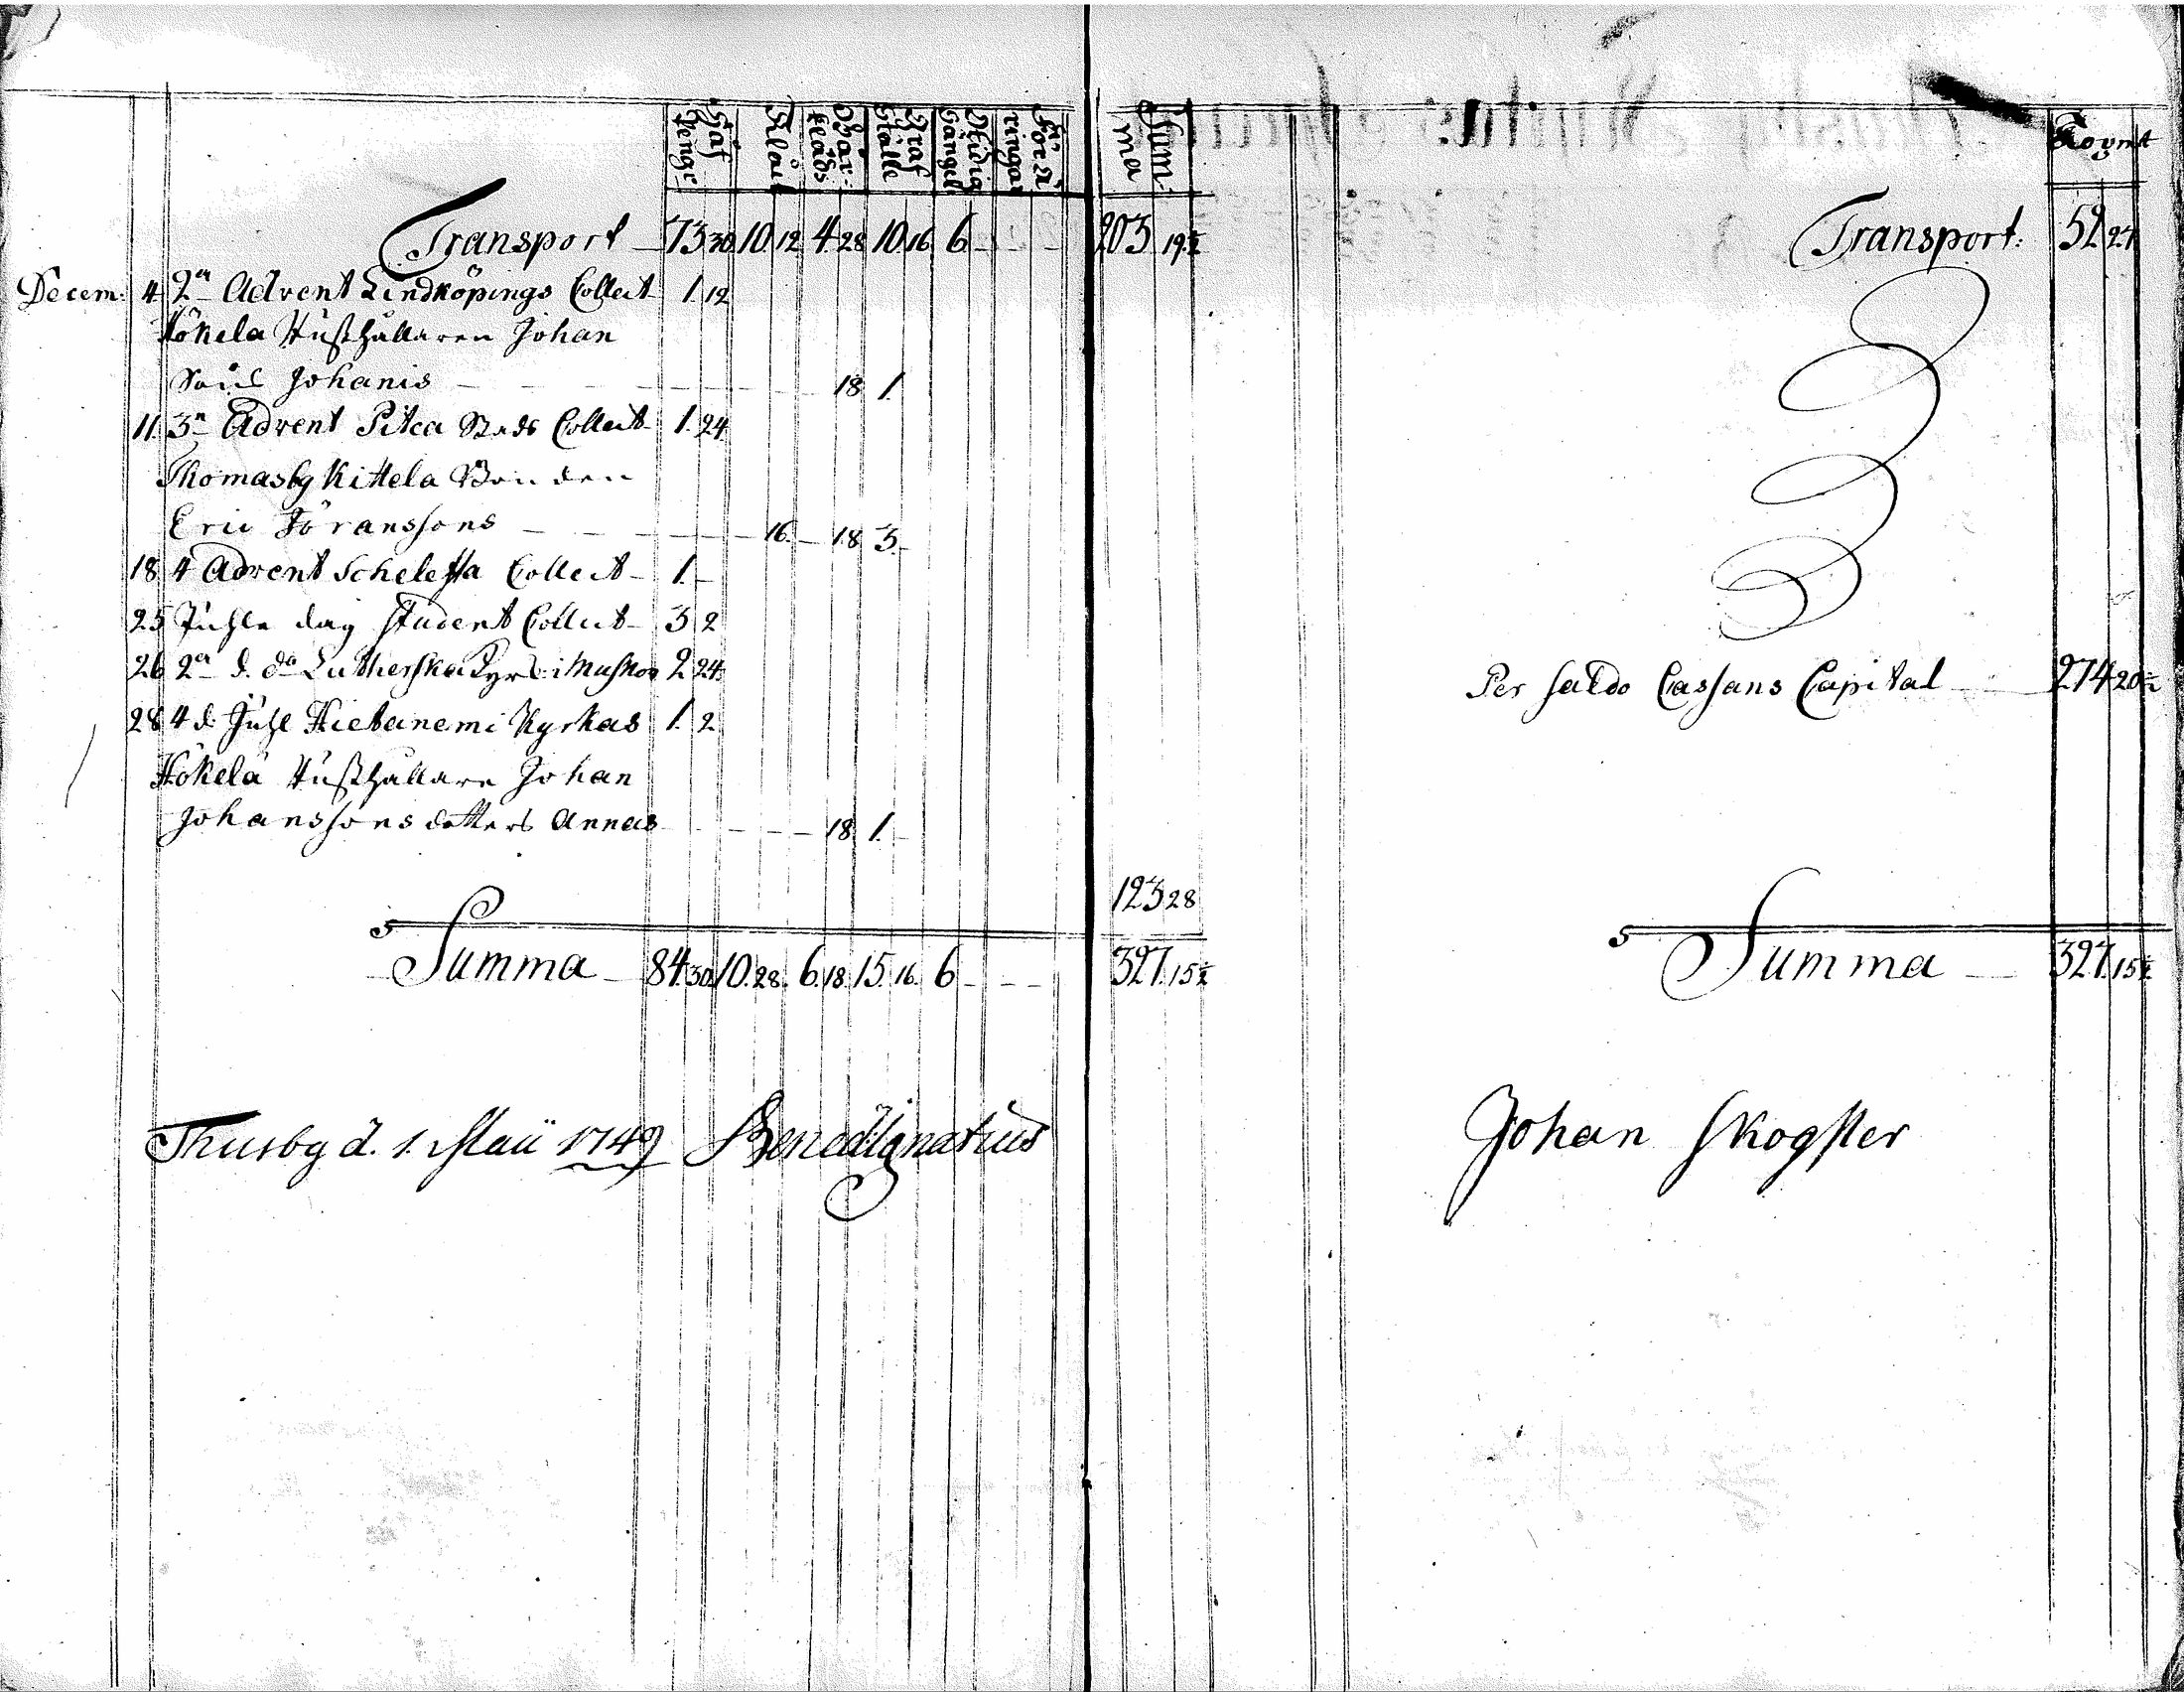 Håf Penge
Klåck
Bår: kläds
Graf Ställe
Midia Gångel
För Ä ringar
Sum: ma
Koppmt
Transport 73 30 10 12 4 28 10 16 6 - - - 203 19½
Transport: 52 27
Decem: 4 2a Advent Lindköpings Collect 1 12
Hökela Hußhållaren Johan
Sons Johanis 18 1.
11. 3a Advent Pitea Stads Collect 1. 24
Thomasby Kittela Bonden
Eric Jöranssons 16. 18 3.
18 4 Advent Scheleffta Collect 1. -
25 Juhle dag Student Collect 3 2
26 2a d. do Lutherska Kyrk: i Muskow 2 24
Per Saldo Cassans Capital 274 20½
28 4 d. Juhl Hietanemi Kyrkas 1. 2
Hökelä Hußhållare Johan
Johanssons dotters Annas 18 1.
123 28
Summa 84 30 10. 28. 6. 18. 15. 16. 6 - - - 327. 15½
Summa 327. 15½
Thusby d. 1. Maii 1749 Bened: Ignatius
Johan Skogster